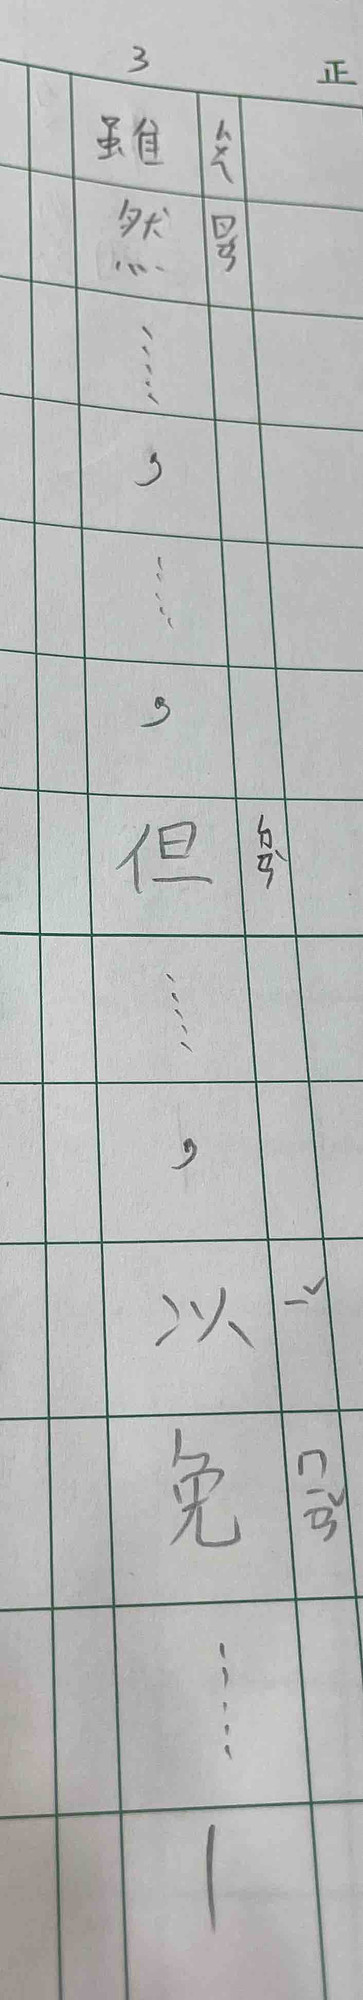 3
正
雖然……，……，但……，以免……｜
ㄙㄨㄟ ㄖㄢˊ ㄉㄢˋ ㄧˇ ㄇㄧㄢˇ